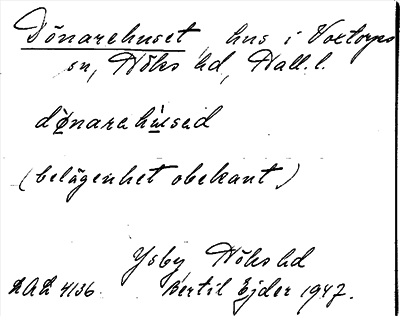 Dönarehuset, hus i Voxtorps
sn, Höks hd, Hall. l.
dø̣narehu̇seḋ
(belägenhet obekant.)
Ysby Höks hd
LAL 4136. Bertil Ejder 1947.